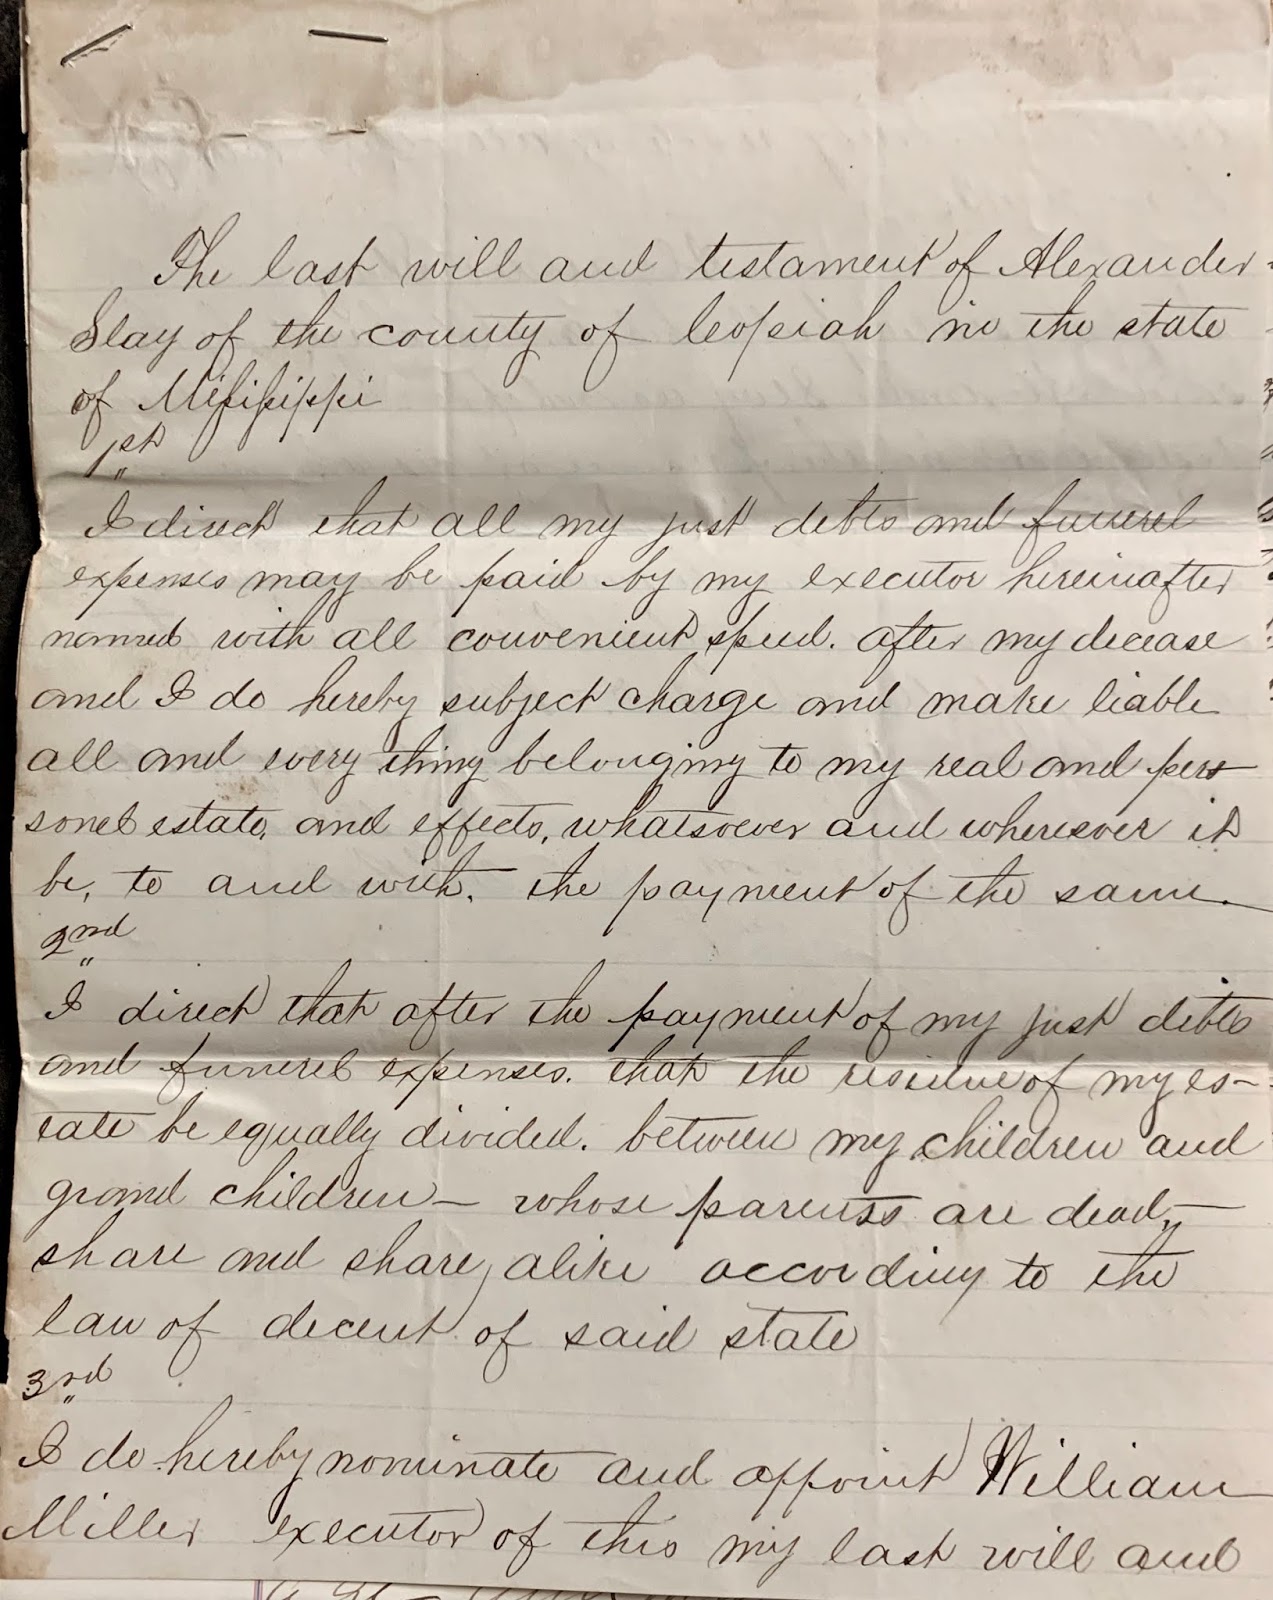 The last will and testament of Alexander
Slay of the county of Copiah in the state
of Missisippi
1st
I direct that all my just debts and funerel
expenses may be paid by my executor hereinafter
named with all convenient speed. after my decease
and I do hereby subject charge and make liable
all and every thing belonging to my real and per
sonel estate, and effects, whatsoever and wheresoever it
be, to and with, the payment of the same.
2nd
I direct that after the payment of my just debts
and funerel expenses. that the residue of my es-
tate be equally divided. between my children and
grand children - whose parents are dead, -
share and share, alike according to the
law of decent of said state
3rd
I do hereby nominate and appoint William
Miller executor of this my last will and